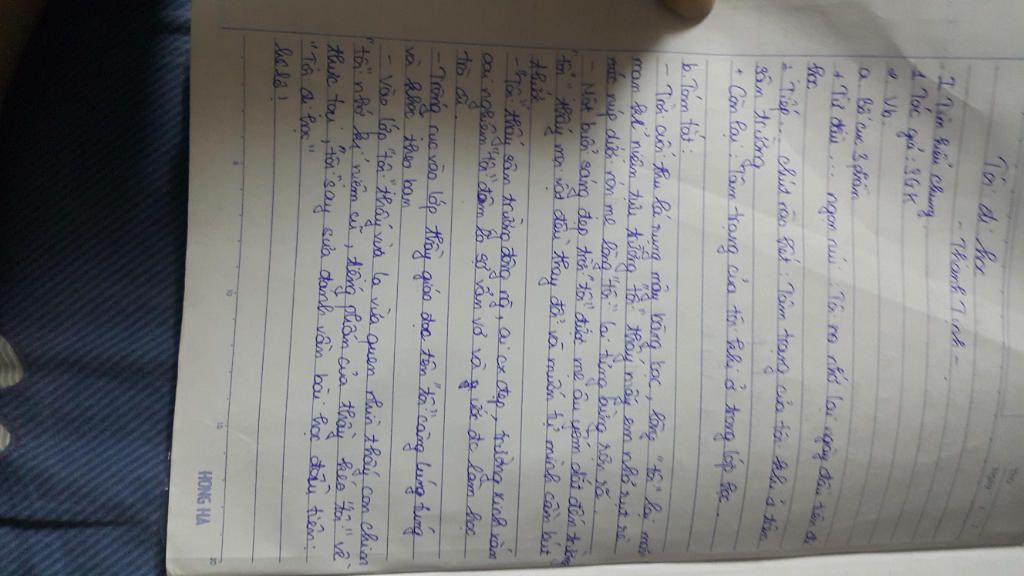 Tôi đi học
- Thanh Tịnh -
I. Tìm hiểu chung
1. Tác giả: SGK
2. Vb.
a. Bố cục: 3 phần
+ Từ đầu ... ngọn núi: Tôi nhớ lại ngày đầu tiên đi
học
+ Tiếp ... chút nào hết: Tâm trạng của tôi khi ở trên
sân trường
+ Còn lại: Tâm trạng của tôi khi ở trong lớp học
b. Tóm tắt:
- Trời cuối thu lá rụng mây bàng bạc, lòng "tôi" lại mơn
man kỉ niệm tựu trường "tôi" thấy mấy em nhỏ rụt rè
núp dưới nón mẹ lòng "tôi" lại tưng bừng rộn rã.
- Một buổi sáng đẹp trời "tôi" được mẹ âu yếm dắt đến trường
"tôi" thấy mọi vật đều thay đổi và muốn tự mình cầm bút
thước
- "Tôi" thấy sân trường đông, ai đẹp, trường xinh xắn
oai nghiêm "tôi" đâm lo sợ vẩn vơ
tôi
- Trong lúc vào lớp thầy giáo đọc tên "tôi" càng lúng túng
và khóc theo bạn
- Vào lớp "tôi" thấy vừa lạ vừa quen nhìn thấy con chim
"tôi" nhớ kỉ niệm cũ, tiếng phấn của thầy kéo "tôi" về
thực tại, "tôi" say sưa đánh vần bài học đầu tiên:
"Tôi đi học"
HONG HA